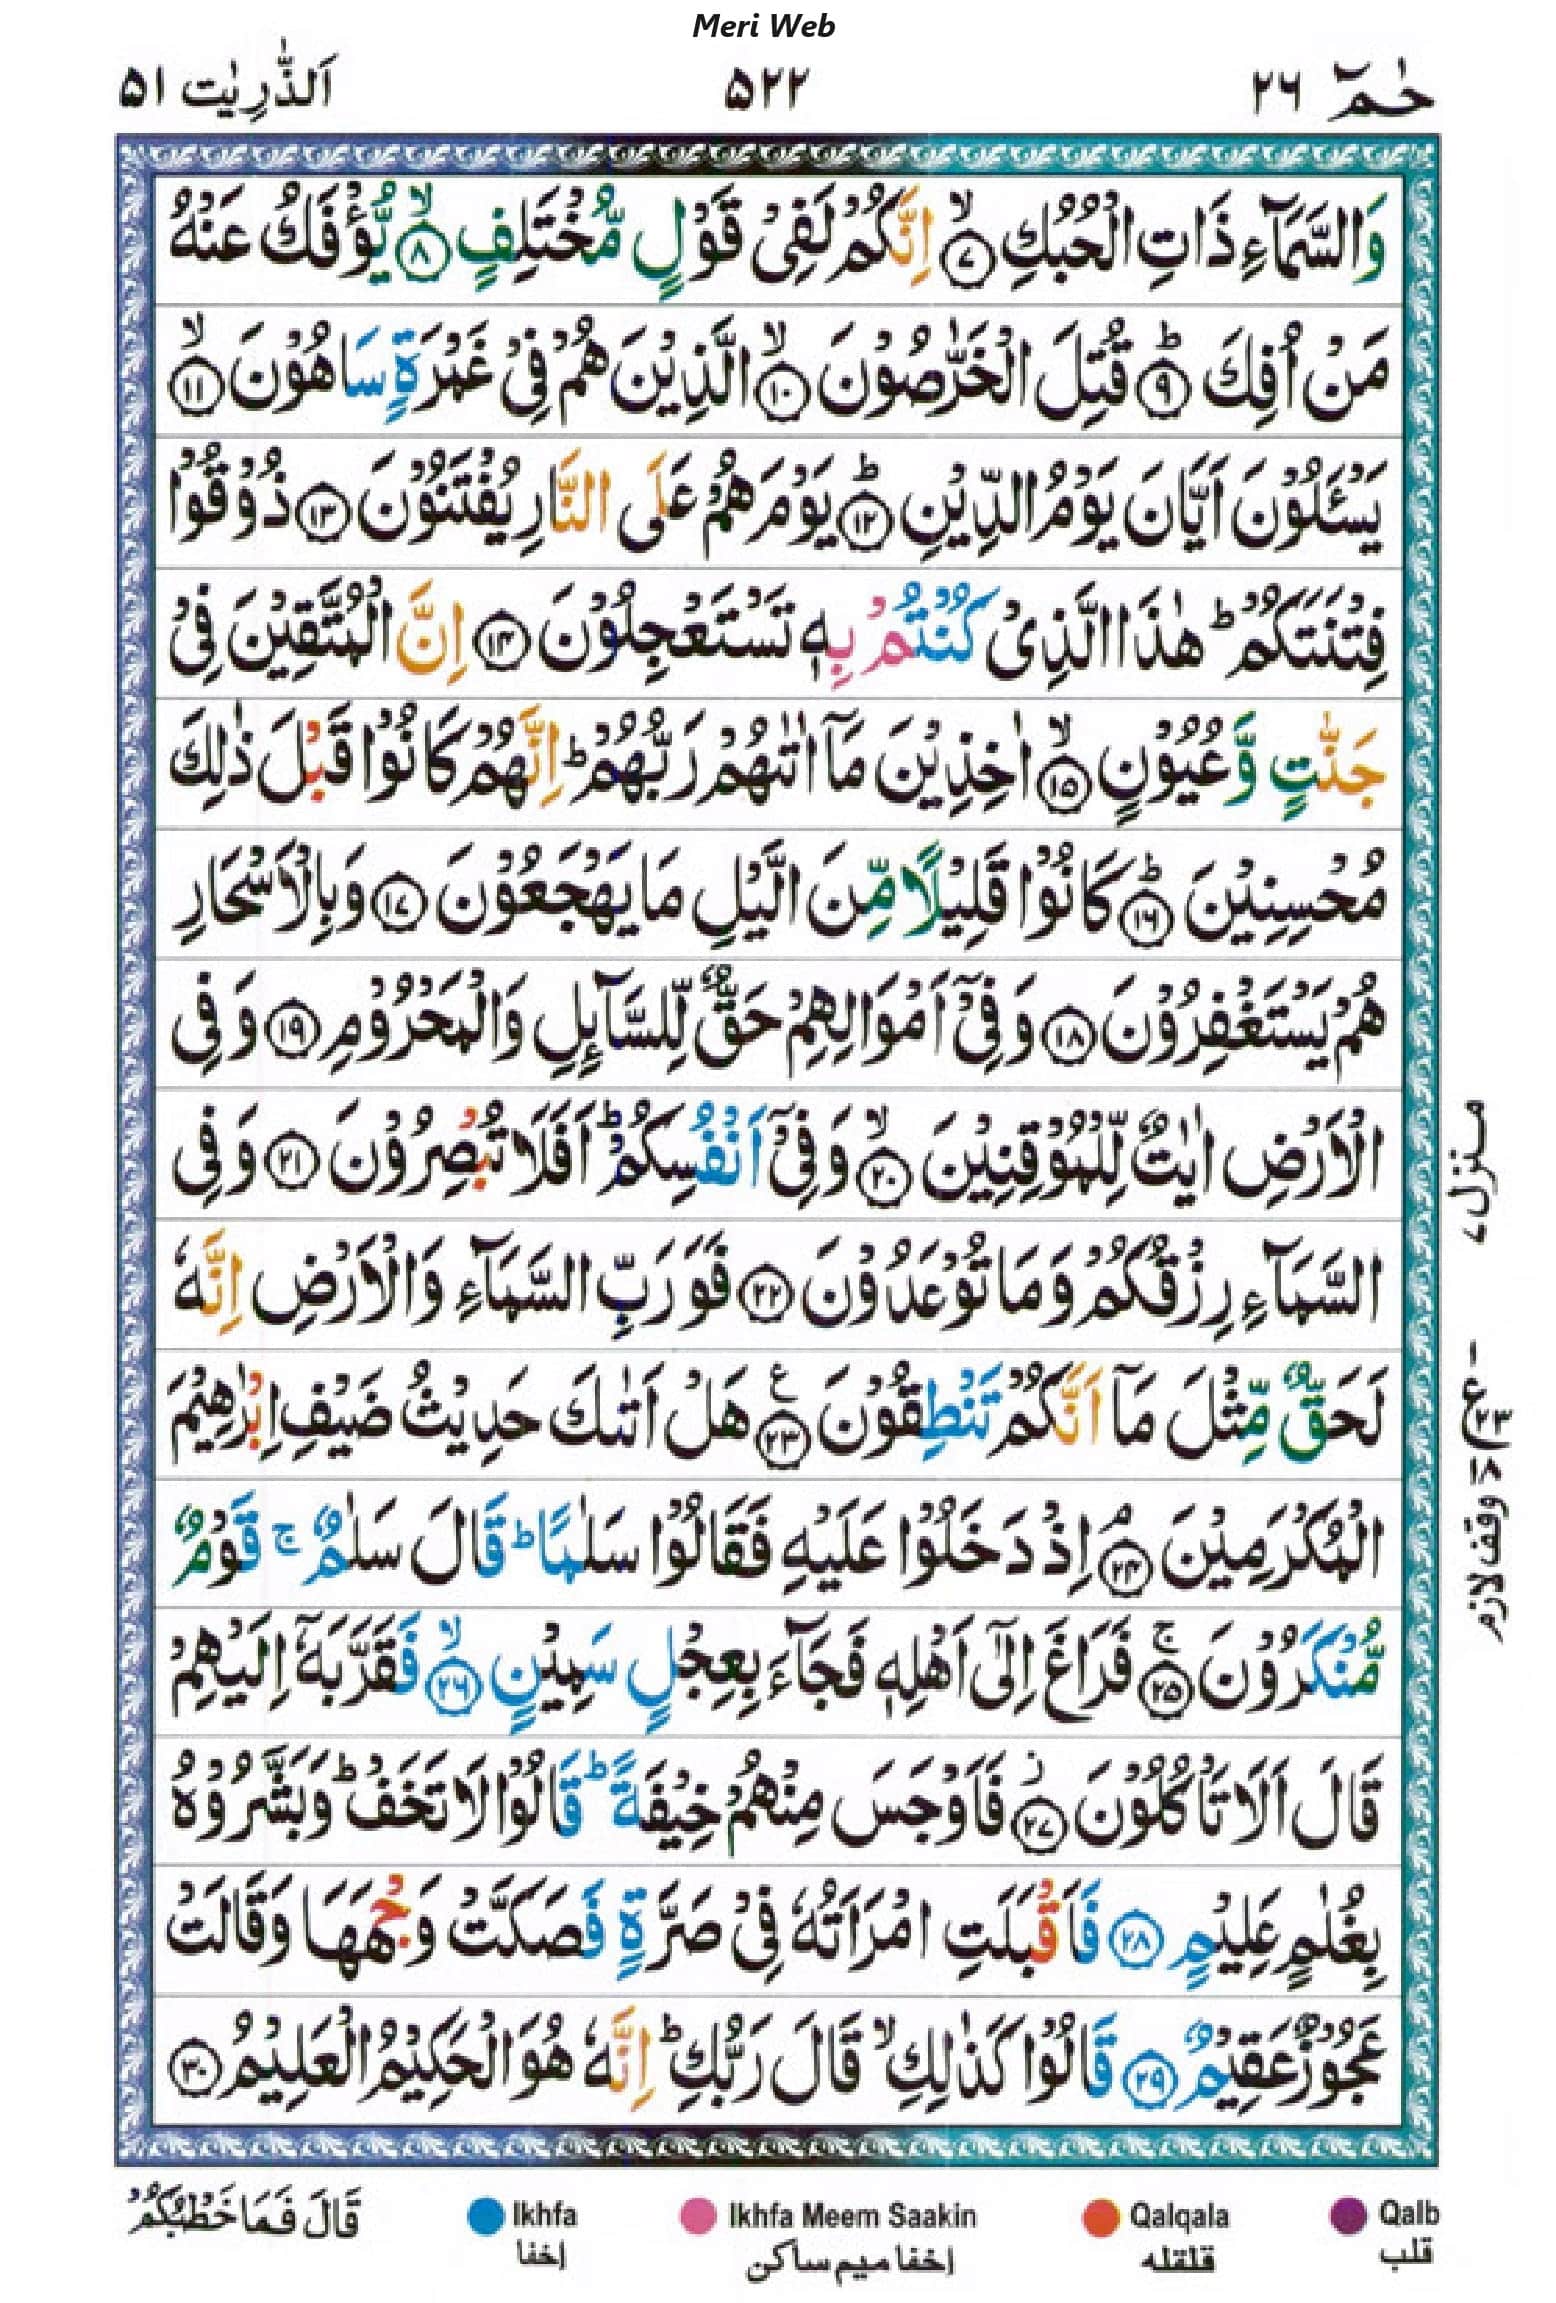 Meri Web
حٰمٓ ۲۶
۵۲۲
اَلذّٰرِیٰت ۵۱
وَالسَّمَآءِ ذَاتِ الْحُبُكِ ۙ﴿۷﴾ اِنَّكُمْ لَفِیْ قَوْلٍ مُّخْتَلِفٍ ۙ﴿۸﴾ یُّؤْفَكُ عَنْهُ
مَنْ اُفِكَ ؕ﴿۹﴾ قُتِلَ الْخَرّٰصُوْنَ ۙ﴿۱۰﴾ الَّذِیْنَ هُمْ فِیْ غَمْرَةٍ سَاهُوْنَ ۙ﴿۱۱﴾
یَسْـَٔلُوْنَ اَیَّانَ یَوْمُ الدِّیْنِ ؕ﴿۱۲﴾ یَوْمَ هُمْ عَلَی النَّارِ یُفْتَنُوْنَ ﴿۱۳﴾ ذُوْقُوْا
فِتْنَتَكُمْ ؕ هٰذَا الَّذِیْ كُنْتُمْ بِهٖ تَسْتَعْجِلُوْنَ ﴿۱۴﴾ اِنَّ الْمُتَّقِیْنَ فِیْ
جَنّٰتٍ وَّعُیُوْنٍ ۙ﴿۱۵﴾ اٰخِذِیْنَ مَاۤ اٰتٰىهُمْ رَبُّهُمْ ؕ اِنَّهُمْ كَانُوْا قَبْلَ ذٰلِكَ
مُحْسِنِیْنَ ؕ﴿۱۶﴾ كَانُوْا قَلِیْلًا مِّنَ الَّیْلِ مَا یَهْجَعُوْنَ ﴿۱۷﴾ وَبِالْاَسْحَارِ
هُمْ یَسْتَغْفِرُوْنَ ﴿۱۸﴾ وَفِیْۤ اَمْوَالِهِمْ حَقٌّ لِّلسَّآىِٕلِ وَالْمَحْرُوْمِ ﴿۱۹﴾ وَفِی
الْاَرْضِ اٰیٰتٌ لِّلْمُوْقِنِیْنَ ۙ﴿۲۰﴾ وَفِیْۤ اَنْفُسِكُمْ ؕ اَفَلَا تُبْصِرُوْنَ ﴿۲۱﴾ وَفِی
السَّمَآءِ رِزْقُكُمْ وَمَا تُوْعَدُوْنَ ﴿۲۲﴾ فَوَرَبِّ السَّمَآءِ وَالْاَرْضِ اِنَّهٗ
لَحَقٌّ مِّثْلَ مَاۤ اَنَّكُمْ تَنْطِقُوْنَ ﴿۲۳﴾ۧ هَلْ اَتٰىكَ حَدِیْثُ ضَیْفِ اِبْرٰهِیْمَ
الْمُكْرَمِیْنَ ۘ﴿۲۴﴾ اِذْ دَخَلُوْا عَلَیْهِ فَقَالُوْا سَلٰمًا ؕ قَالَ سَلٰمٌ ۚ قَوْمٌ
مُّنْكَرُوْنَ ۚ﴿۲۵﴾ فَرَاغَ اِلٰۤی اَهْلِهٖ فَجَآءَ بِعِجْلٍ سَمِیْنٍ ۙ﴿۲۶﴾ فَقَرَّبَهٗۤ اِلَیْهِمْ
قَالَ اَلَا تَاْكُلُوْنَ ؗ﴿۲۷﴾ فَاَوْجَسَ مِنْهُمْ خِیْفَةً ؕ قَالُوْا لَا تَخَفْ ؕ وَبَشَّرُوْهُ
بِغُلٰمٍ عَلِیْمٍ ﴿۲۸﴾ فَاَقْبَلَتِ امْرَاَتُهٗ فِیْ صَرَّةٍ فَصَكَّتْ وَجْهَهَا وَقَالَتْ
عَجُوْزٌ عَقِیْمٌ ﴿۲۹﴾ قَالُوْا كَذٰلِكِ ۙ قَالَ رَبُّكِ ؕ اِنَّهٗ هُوَ الْحَكِیْمُ الْعَلِیْمُ ﴿۳۰﴾
منزل ۷
وقف لازم
قَالَ فَمَا خَطْبُكُمْ
Ikhfa
إخفا
Ikhfa Meem Saakin
إخفا میم ساکن
Qalqala
قلقله
Qalb
قلب